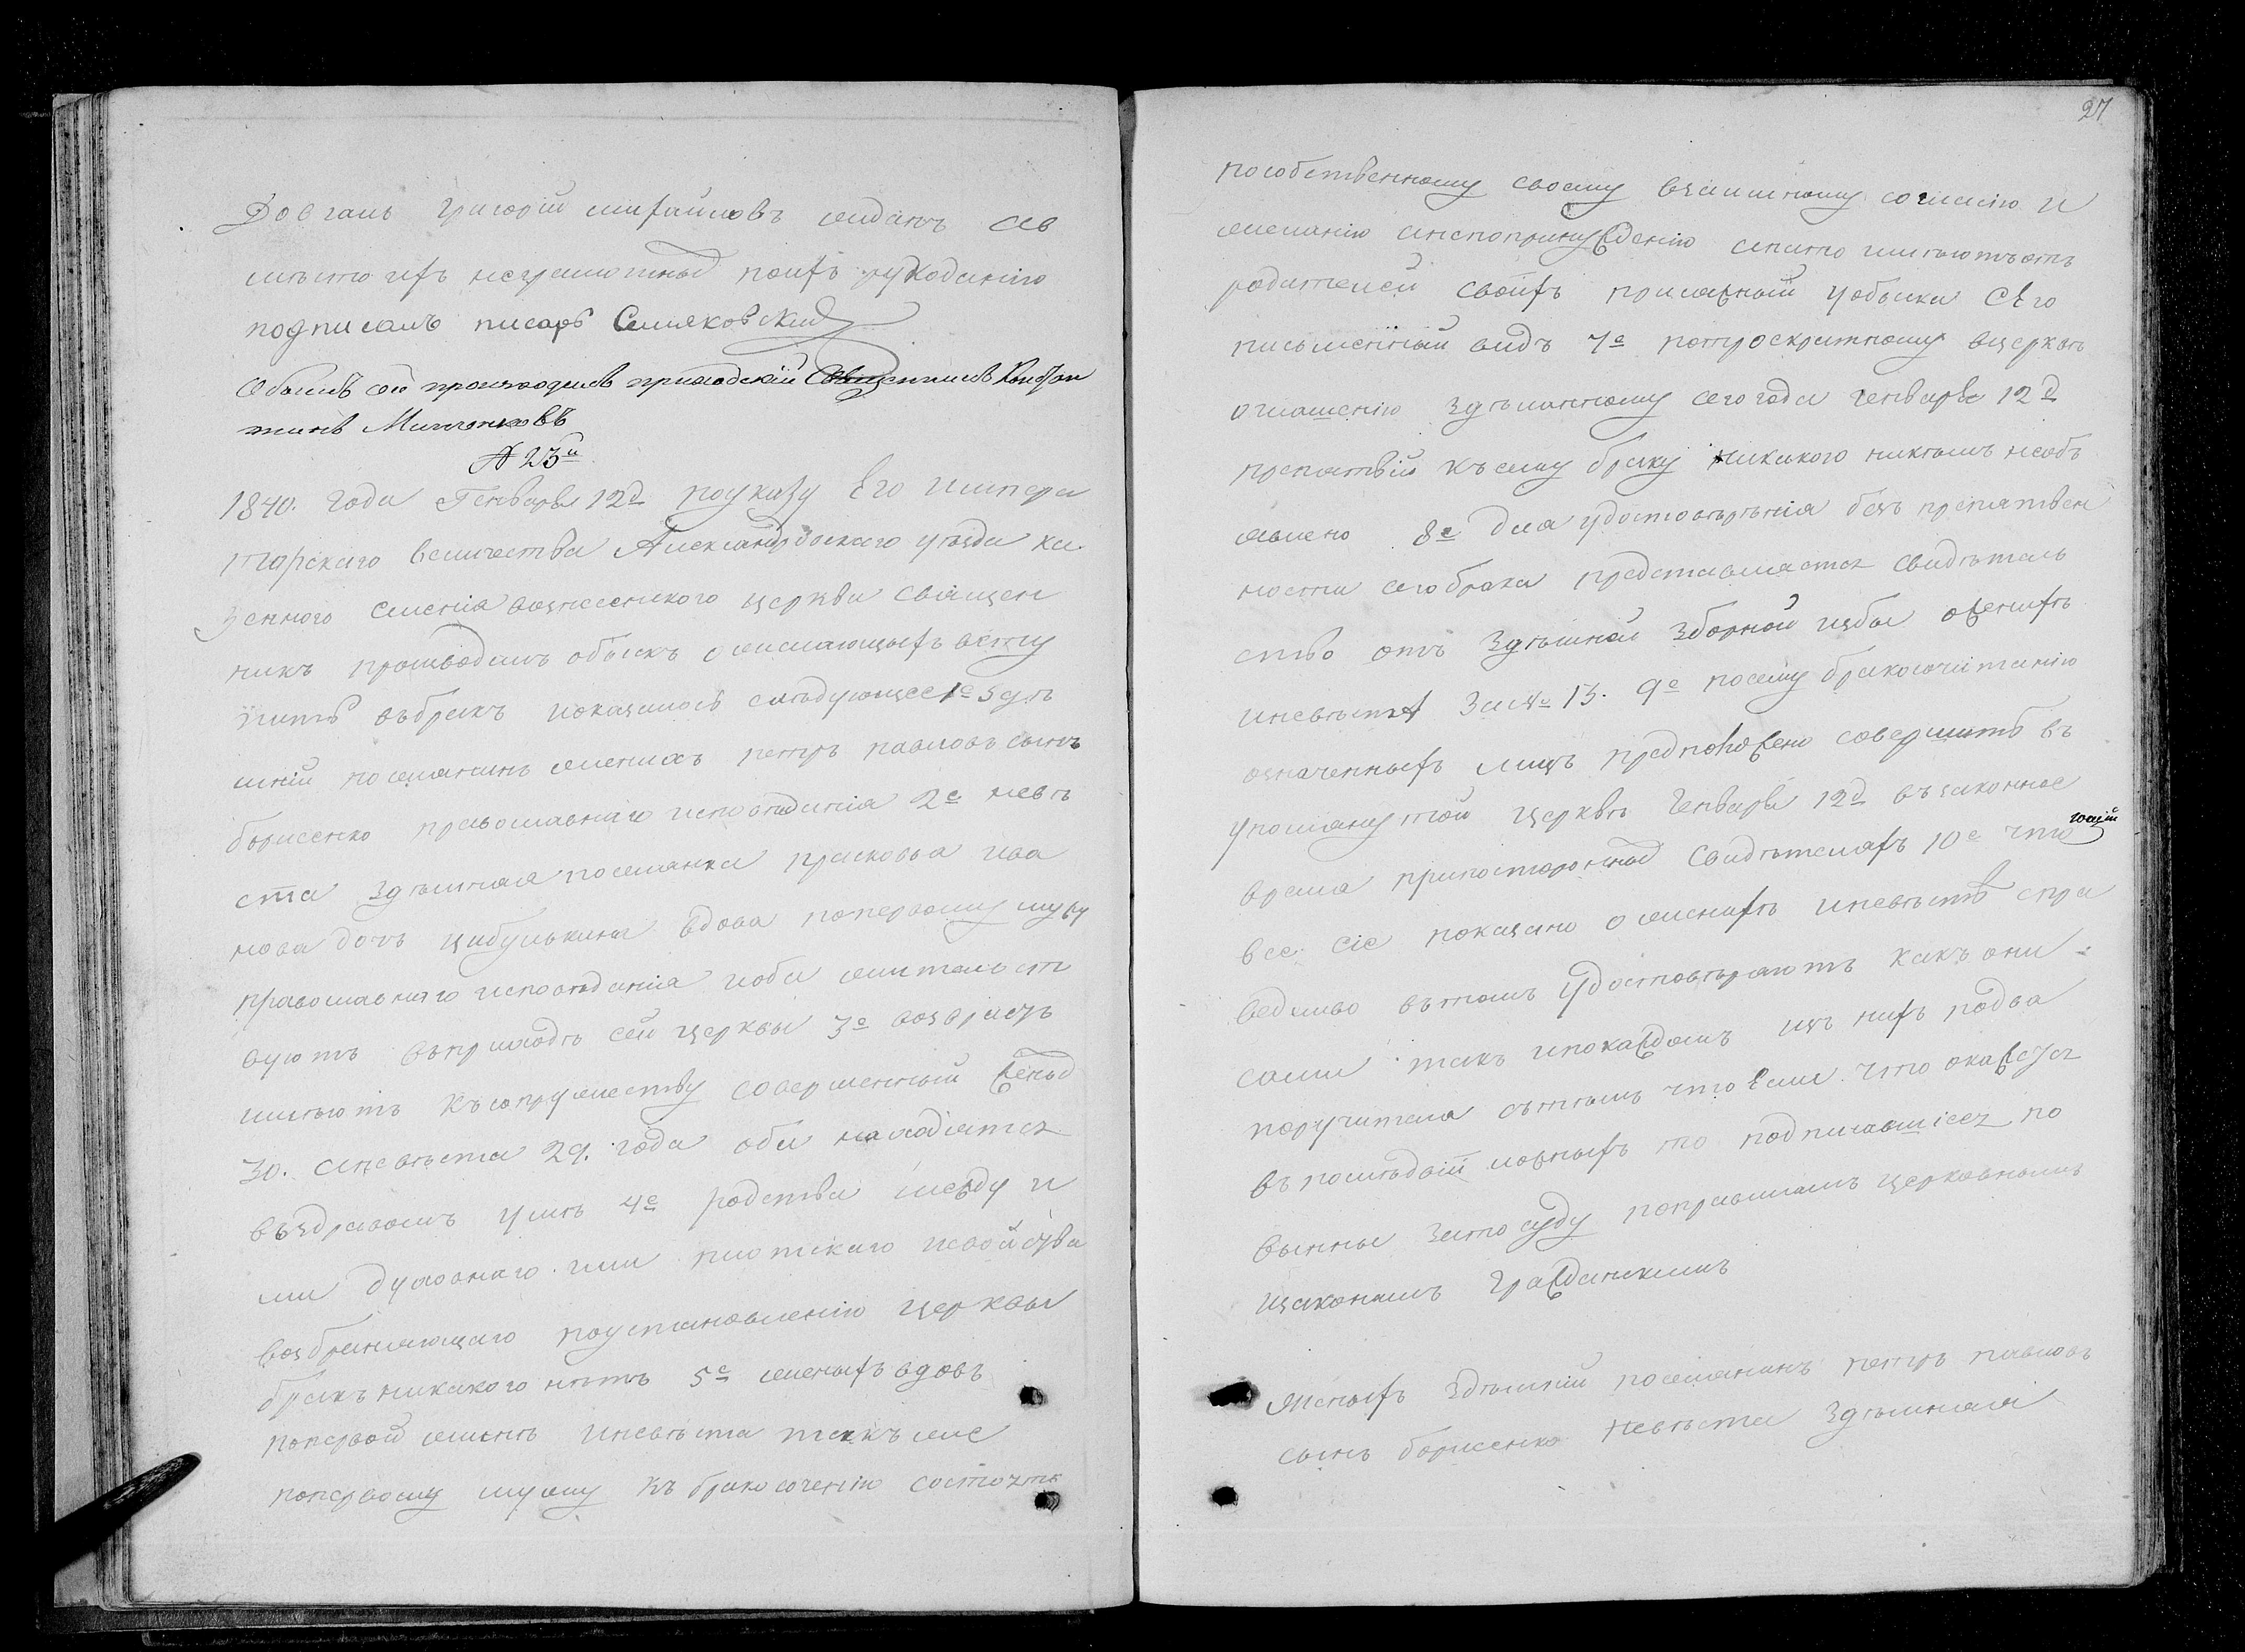 Довгань Григорій Михайловъ Жиданъ а в
мѣсто ихъ неграмотных по ихъ рукоданію
подписалъ писарь Семяковский
Обыскъ сей производилъ приходскій Священникъ Констан
тинъ
№ 23й
1840. года Генваря 12д по указу Его импера
торскаго величества Александровскаго уезда ка
зенного селенія вознесенского церкви священ
никъ производилъ обыскъ о желающыхъ всту
пить въ бракъ и оказалось слѣдующее 1е здѣ
шній поселянинъ женихъ петръ павловъ сынъ
борисенко православнаго исповѣданія 2е невѣ
ста здѣшная поселянка прасковья ива
нова дочь цибулькина вдова по первому мужу
православнаго исповѣданія и оба жительст
вуютъ въ приходѣ сей церквы 3е возрастъ
имѣютъ къ супружеству совершенный жених
30. а невѣста 29. года оба находятся
въ здравомъ умѣ 4е родства между и
ми духовнаго или плотскаго и свойства
возбраняющаго по установленію церквы
бракъ никакого нѣтъ 5е женыхъ вдовъ
по первой женѣ и невѣста такъ же
по первому мужу 6е къ бракосочению состоятъ
27
по собственному своему взаимному согласію и
желанію а не по принуждению а на то имѣютъ отъ
родителей своихъ при семъ у обыска сего
письменный видъ 7е по троекратному в церквѣ
оглашенію здѣланному сего года генваря 12д
препятвій къ сему браку никакого никѣмъ не объ
явлено 8е для удостовѣрѣнія безъ препятвен
ности сего брака представляется свидѣтель
ство отъ здѣшней зборной избы о женихѣ
и невѣстѣ за № 15. 9е по сему бракосочитанію
означенныхъ лицъ предположено совершить въ
упомянутой церквѣ генваря 12д въ законное
время при посторонных свидѣтеляхъ 10е что
все сіе показано о женихѣ и невѣстѣ спра
ведливо въ томъ удостовѣряютъ какъ они
сами такъ и по каждомъ изъ нихъ по два
поручителя съ тѣмъ что ели что окажется
въ послѣдвіи ложныхъ то подписавшіеся по
вынны за то суду по правиламъ церковнымъ
и законамъ гражданскимъ
Женыхъ здѣшній поселянинъ петръ павловъ
сынъ борисенко невѣста здѣшная